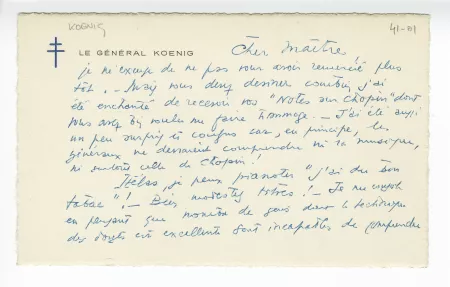 KOENIG
41-81
LE GÉNÉRAL KOENIG
Cher Maître,
je m'excuse de ne pas vous avoir remercié plus
tôt. - Mais vous devez deviner combien j'ai
été enchanté de recevoir vos "Notes sur Chopin" dont
vous avez bien voulu me faire hommage. - J'ai été aussi
un peu surpris et confus car, en principe, les
généraux ne devraient comprendre ni la musique,
ni surtout celle de Chopin!
Hélas, je peux pianoter "j'ai du bon
tabac"! - Bien modestes titres! - Je me console
en pensant que nombre de gens dont la technique
des doigts est excellente sont incapables de comprendre